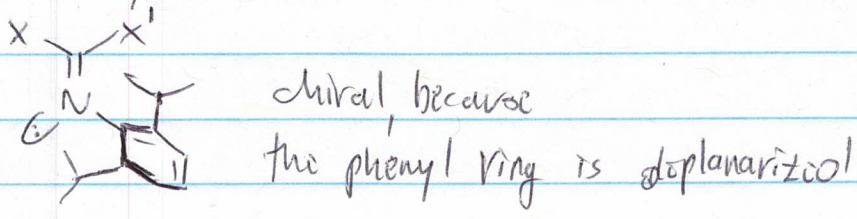 X X'
N
chiral, because
the phenyl ring is deplanarized